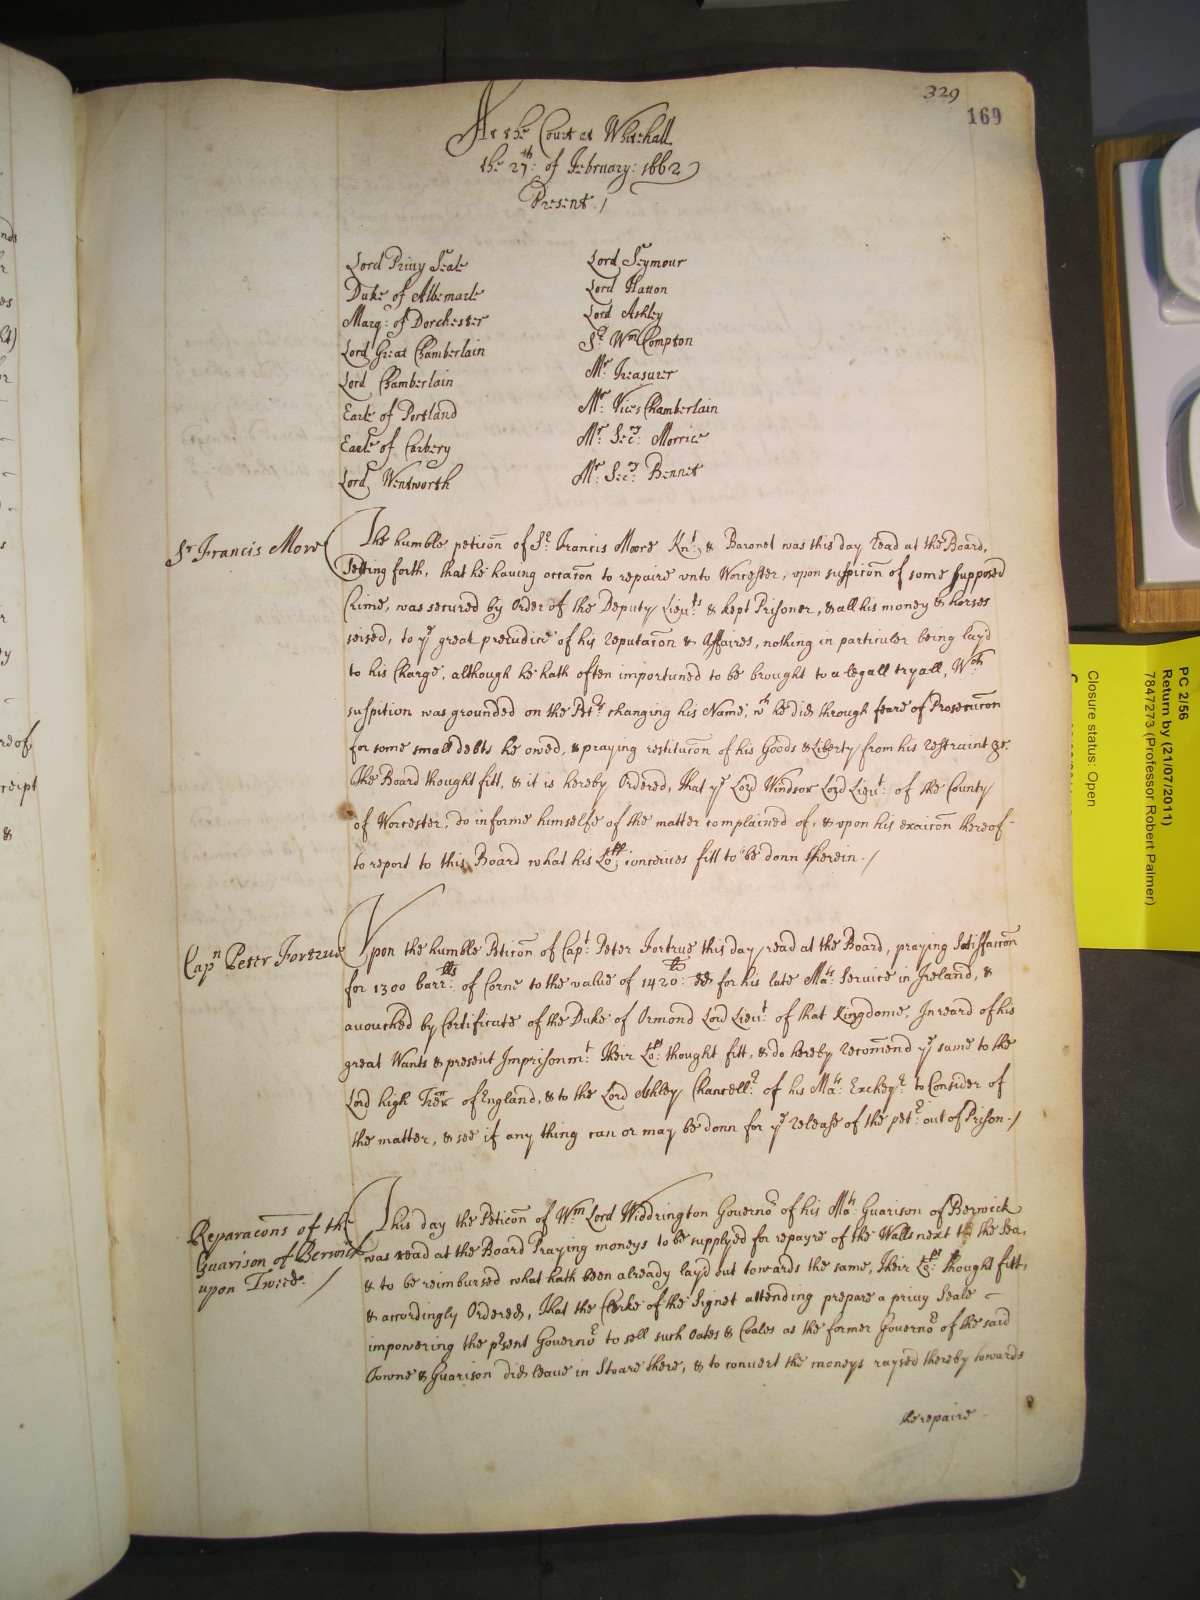 329
169
At the Court at Whitehall
the 27th: of February: 1662
Present /
Lord Privy Seale
Duke of Albemarle
Marq: of Dorchester
Lord Great Chamberlain
Lord Chamberlain
Earle of Portland
Earle of Carbery
Lord Wentworth
Lord Seymour
Lord Hatton
Lord Ashley
Sr Wm Compton
Mr Treasurer
Mr: Vice Chamberlain
Mr: Secry: Morrice
Mr: Secry: Bennet
Sr Francis More
The humble peticon of Sr. Francis Moore Knt: & Baronet was this day read at the Board,
Setting forth, that he having occacon to repaire unto Worcester, upon suspicon of some supposed
Crime, was secured by Order of the Deputy Lieuts & kept Prisoner, & all his money & horses
seised, to ye great preiudice of his reputacon & Affaires, nothing in particuler being lay'd
to his Charge, although he hath often importuned to be brought to a legall tryall, Wch
suspition was grounded on the Petrs changing his Name, wch he did through feare of Prosecucon
for some small debts he owed, & praying restitucon of his Goods & Liberty from his restraint &c.
The Board thought fitt, & it is hereby Ordered, That ye Lord Windsor Lord Lieut: of the County
of Worcester, do informe himselfe of the matter complained of, & upon his exaicon thereof
to report to this Board what his Lopp: conceives fitt to be donn therein. /
Capn Peter Fortrue
Upon the humble Peticon of Capt: Peter Fortrue this day read at the Board, praying Satisfaccon
for 1300 barrlls: of Corne to the value of 1420: lb for his late Mats: Service in Ireland, &
avouched by Certificate of the Duke of Ormond Lord Lieut: of that Kingdome, In reard of his
great Wants & present Imprisonmt: Their Lopps: thought fitt, & do hereby recomend ye same to the
Lord high Trer of England, & to the Lord Ashley Chancellr: of his Mats: Excheqr: to Consider of
the matter, & see if any thing can or may be donn for ye release of the petr: out of Prison. /
Reparacons of the
Guarison of Berwick
upon Tweede: /
This day the Peticon of Wm Lord Widdrington Governor of his Mats: Guarison of Berwick
was read at the Board Praying moneys to be supplyed for repayre of the Walls next to the Sea,
& to be reimbursed what hath been already lay'd out towards the same, Their Lopps: thought fitt,
& accordingly Ordered, That the Clerke of the Signet attending prepare a privy Seale
impowering the present Governor to sell such Oates & Coales as the former Governor of the said
Towne & Guarison did leave in Stoare there, & to convert the moneys raysed thereby towards
the repaire
nds
es
reof,
receipt
&
PC 2/56
Return by (21/07/2011)
7847273 (Professor Robert Palmer)
Closure status: Open